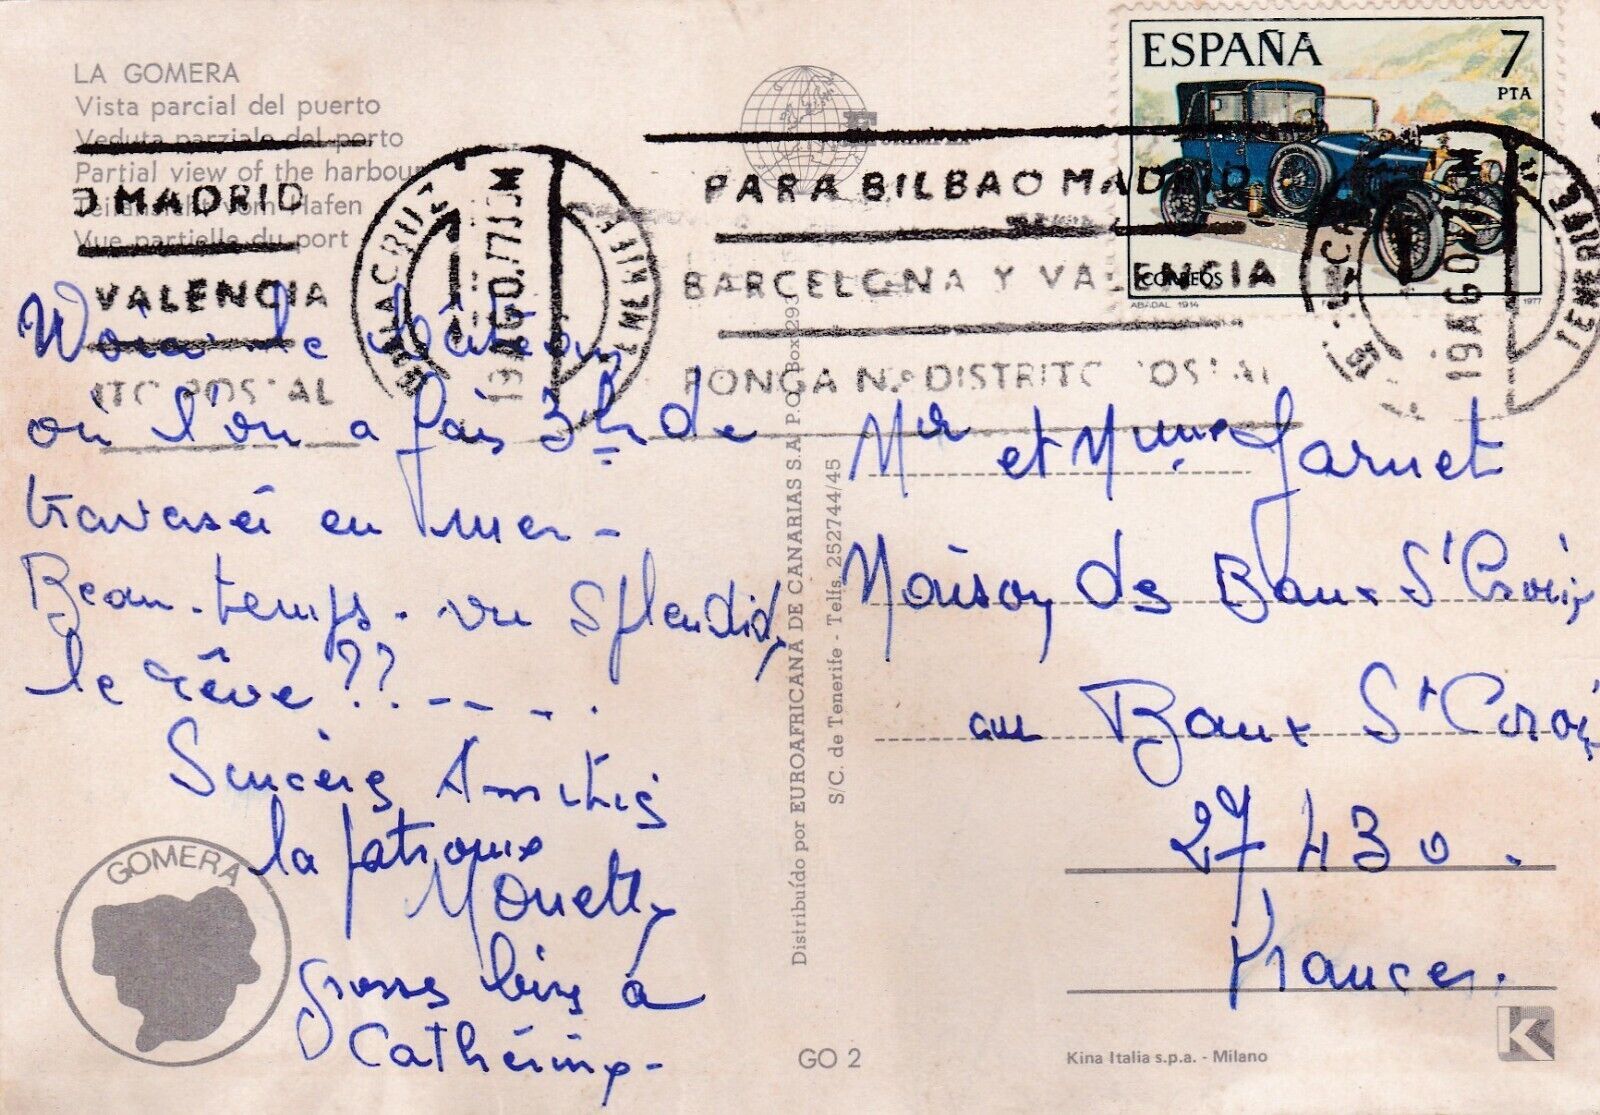 LA GOMERA
Vista parcial del puerto
Veduta parziale del porto
Partial view of the harbour
Teilansicht vom Hafen
Vue partielle du port
MADRID
VALENCIA
POSTAL
19 AGO. 77
TENERIFE
PARA BILBAO MADRID
BARCELONA Y VALENCIA
PONGA N.º DISTRITO POSTAL
19 AGO 77
TENERIFE
ESPAÑA
7
PTA
CORREOS
ABADAL 1914
1977
le bâteau
où l'on a fais 3h de
traversé en mer -
Beau-temps. vu splendid,
le rêve ??-----.
Sincères Amitiés
la patronne
Mouette
grosses bises à
Cathérine -
GOMERA
Distribuído por EUROAFRICANA DE CANARIAS S.A. P.O. Box 293
S/C. de Tenerife - Telfs. 252744/45
GO 2
Mr et Mme Jarnet
Maison de Baux St Croix
au Baux St Croix
27430.
France.
K
Kina Italia s.p.a. - Milano